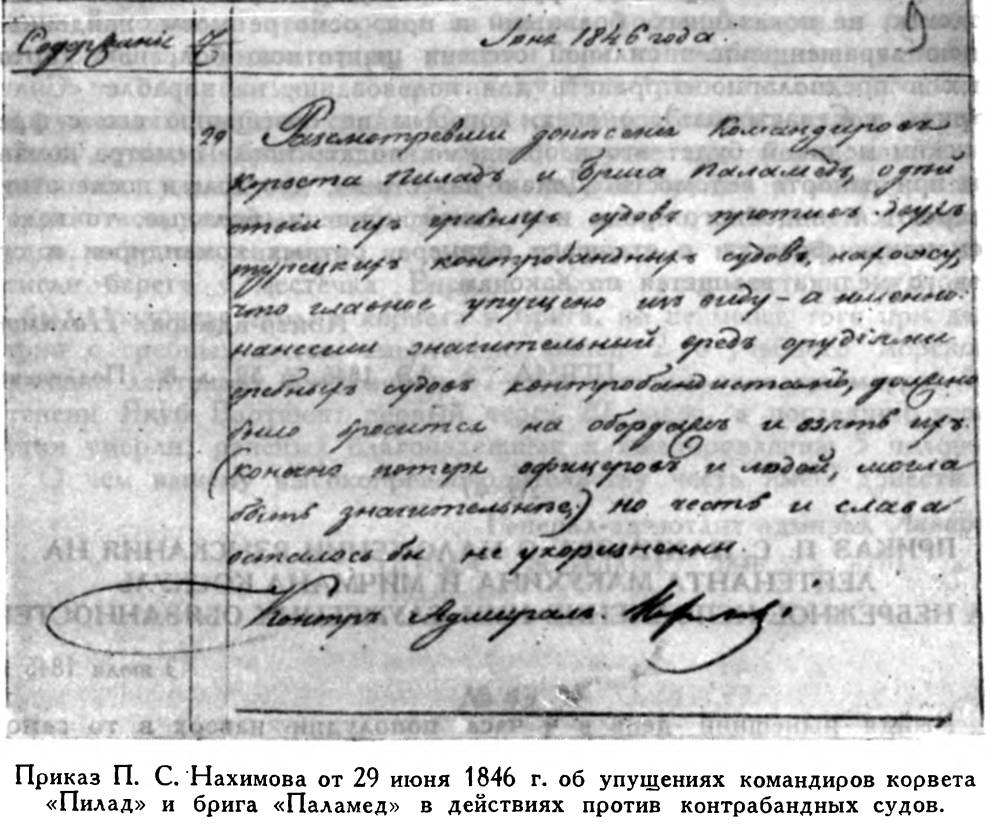 Содержанiе 7 Iюня 1846 года.
29 Разсмотревши донесенiя Командировъ
корвета Пиладъ и брига Паламедъ, о дей
ствiи ихъ гребныхъ судовъ противъ двухъ
турецкихъ контробандныхъ судовъ, нахожу,
что главное упущено изъ виду – а именно:
нанесши значительный вредъ орудiями
гребныхъ судовъ контробандистамъ, должно
было бросится на обордажъ и взять ихъ.
(конечно потеря офицеровъ и людей, могла
быть значительнее) но честь и слава
осталось бы не укоризненны.
Контръ Адмиралъ Нахимовъ.
Приказ П. С. Нахимова от 29 июня 1846 г. об упущениях командиров корвета
«Пилад» и брига «Паламед» в действиях против контрабандных судов.